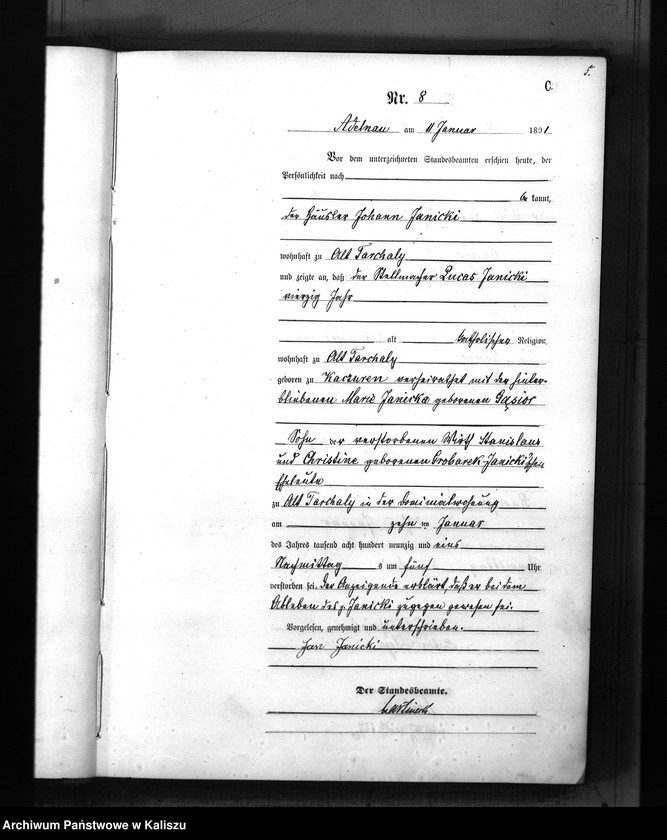 5.
C.
Nr. 8
Adelnau am 11 Januar 1891
Vor dem unterzeichneten Standesbeamten erschien heute, der
Persönlichkeit nach
be kannt,
der Häusler Johann Janicki
wohnhaft zu Alt Tarchaly
und zeigte an, daß der Stellmacher Lucas Janicki
vierzig Jahr
alt katholischer Religion
wohnhaft zu Alt Tarchaly
geboren zu Kaczuren verheirathet mit der hinter-
bliebenen Marie Janicka geborenen Gąsior
Sohn der verstorbenen Wirth Stanislaus
und Christine geborenen Grobarek-Janicki'schen
Eheleute
zu Alt Tarchaly in der Dominialwohnung
am zehn ten Januar
des Jahres tausend acht hundert neunzig und eins
Nachmittag s um fünf Uhr
verstorben sei. Der Anzeigende erklärt, daß er bei dem
Ableben des p. Janicki zugegen gewesen sei.
Vorgelesen, genehmigt und unterschrieben.
Jan Janicki
Der Standesbeamte.
Archiwum Państwowe w Kaliszu